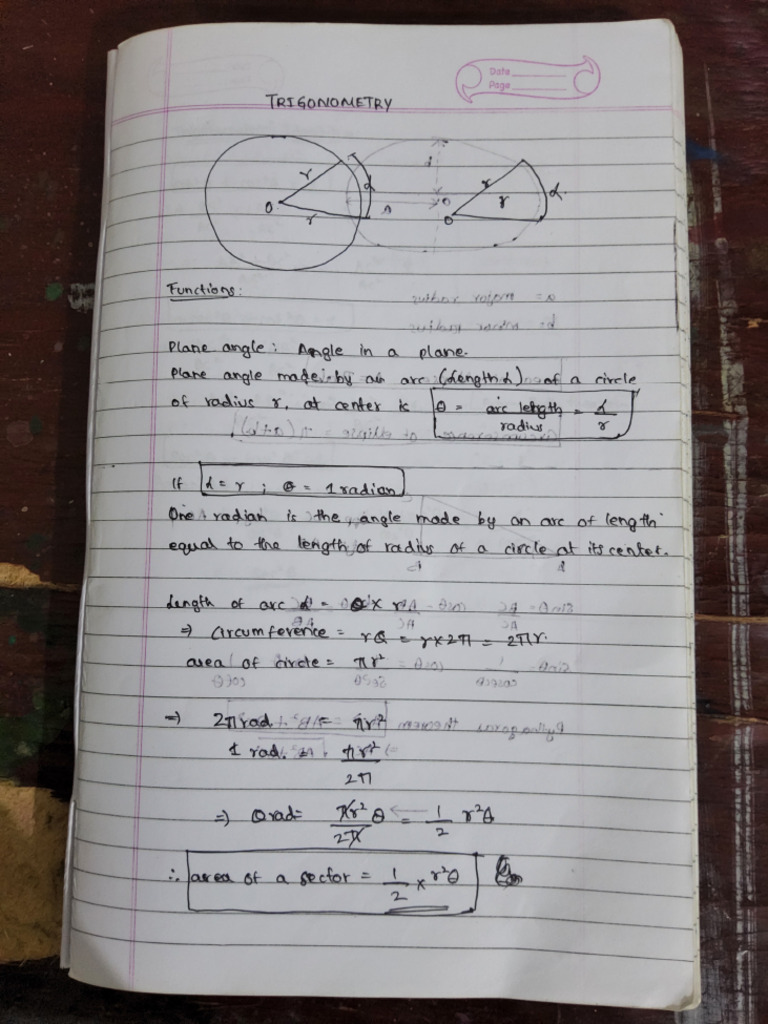 Date
Page
TRIGONOMETRY
r
r
O
l
r
r
O
l
Functions:
Plane angle: Angle in a plane.
Plane angle made by an arc (Length l) of a circle
of radius r, at center is θ = arc length / radius = l / r
If l = r ; θ = 1 radian
One radian is the angle made by an arc of length
equal to the length of radius of a circle at its center.
Length of arc l = θ × r
⇒ circumference = rθ = r × 2π = 2πr.
area of circle = πr²
⇒ 2π rad = πr²
1 rad. = πr² / 2π
⇒ θ rad = πr² / 2π θ = 1 / 2 r²θ
∴ area of a sector = 1 / 2 × r²θ